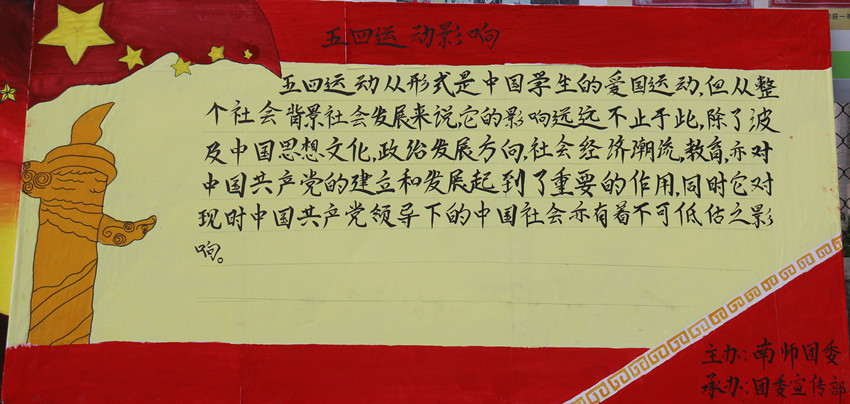 五四运动影响
五四运动从形式是中国学生的爱国运动,但从整
个社会背景社会发展来说,它的影响远远不止于此,除了波
及中国思想文化,政治发展方向,社会经济潮流,教育,亦对
中国共产党的建立和发展起到了重要的作用,同时它对
现时中国共产党领导下的中国社会亦有着不可低估之影
响。
主办:南师团委
承办:团委宣传部